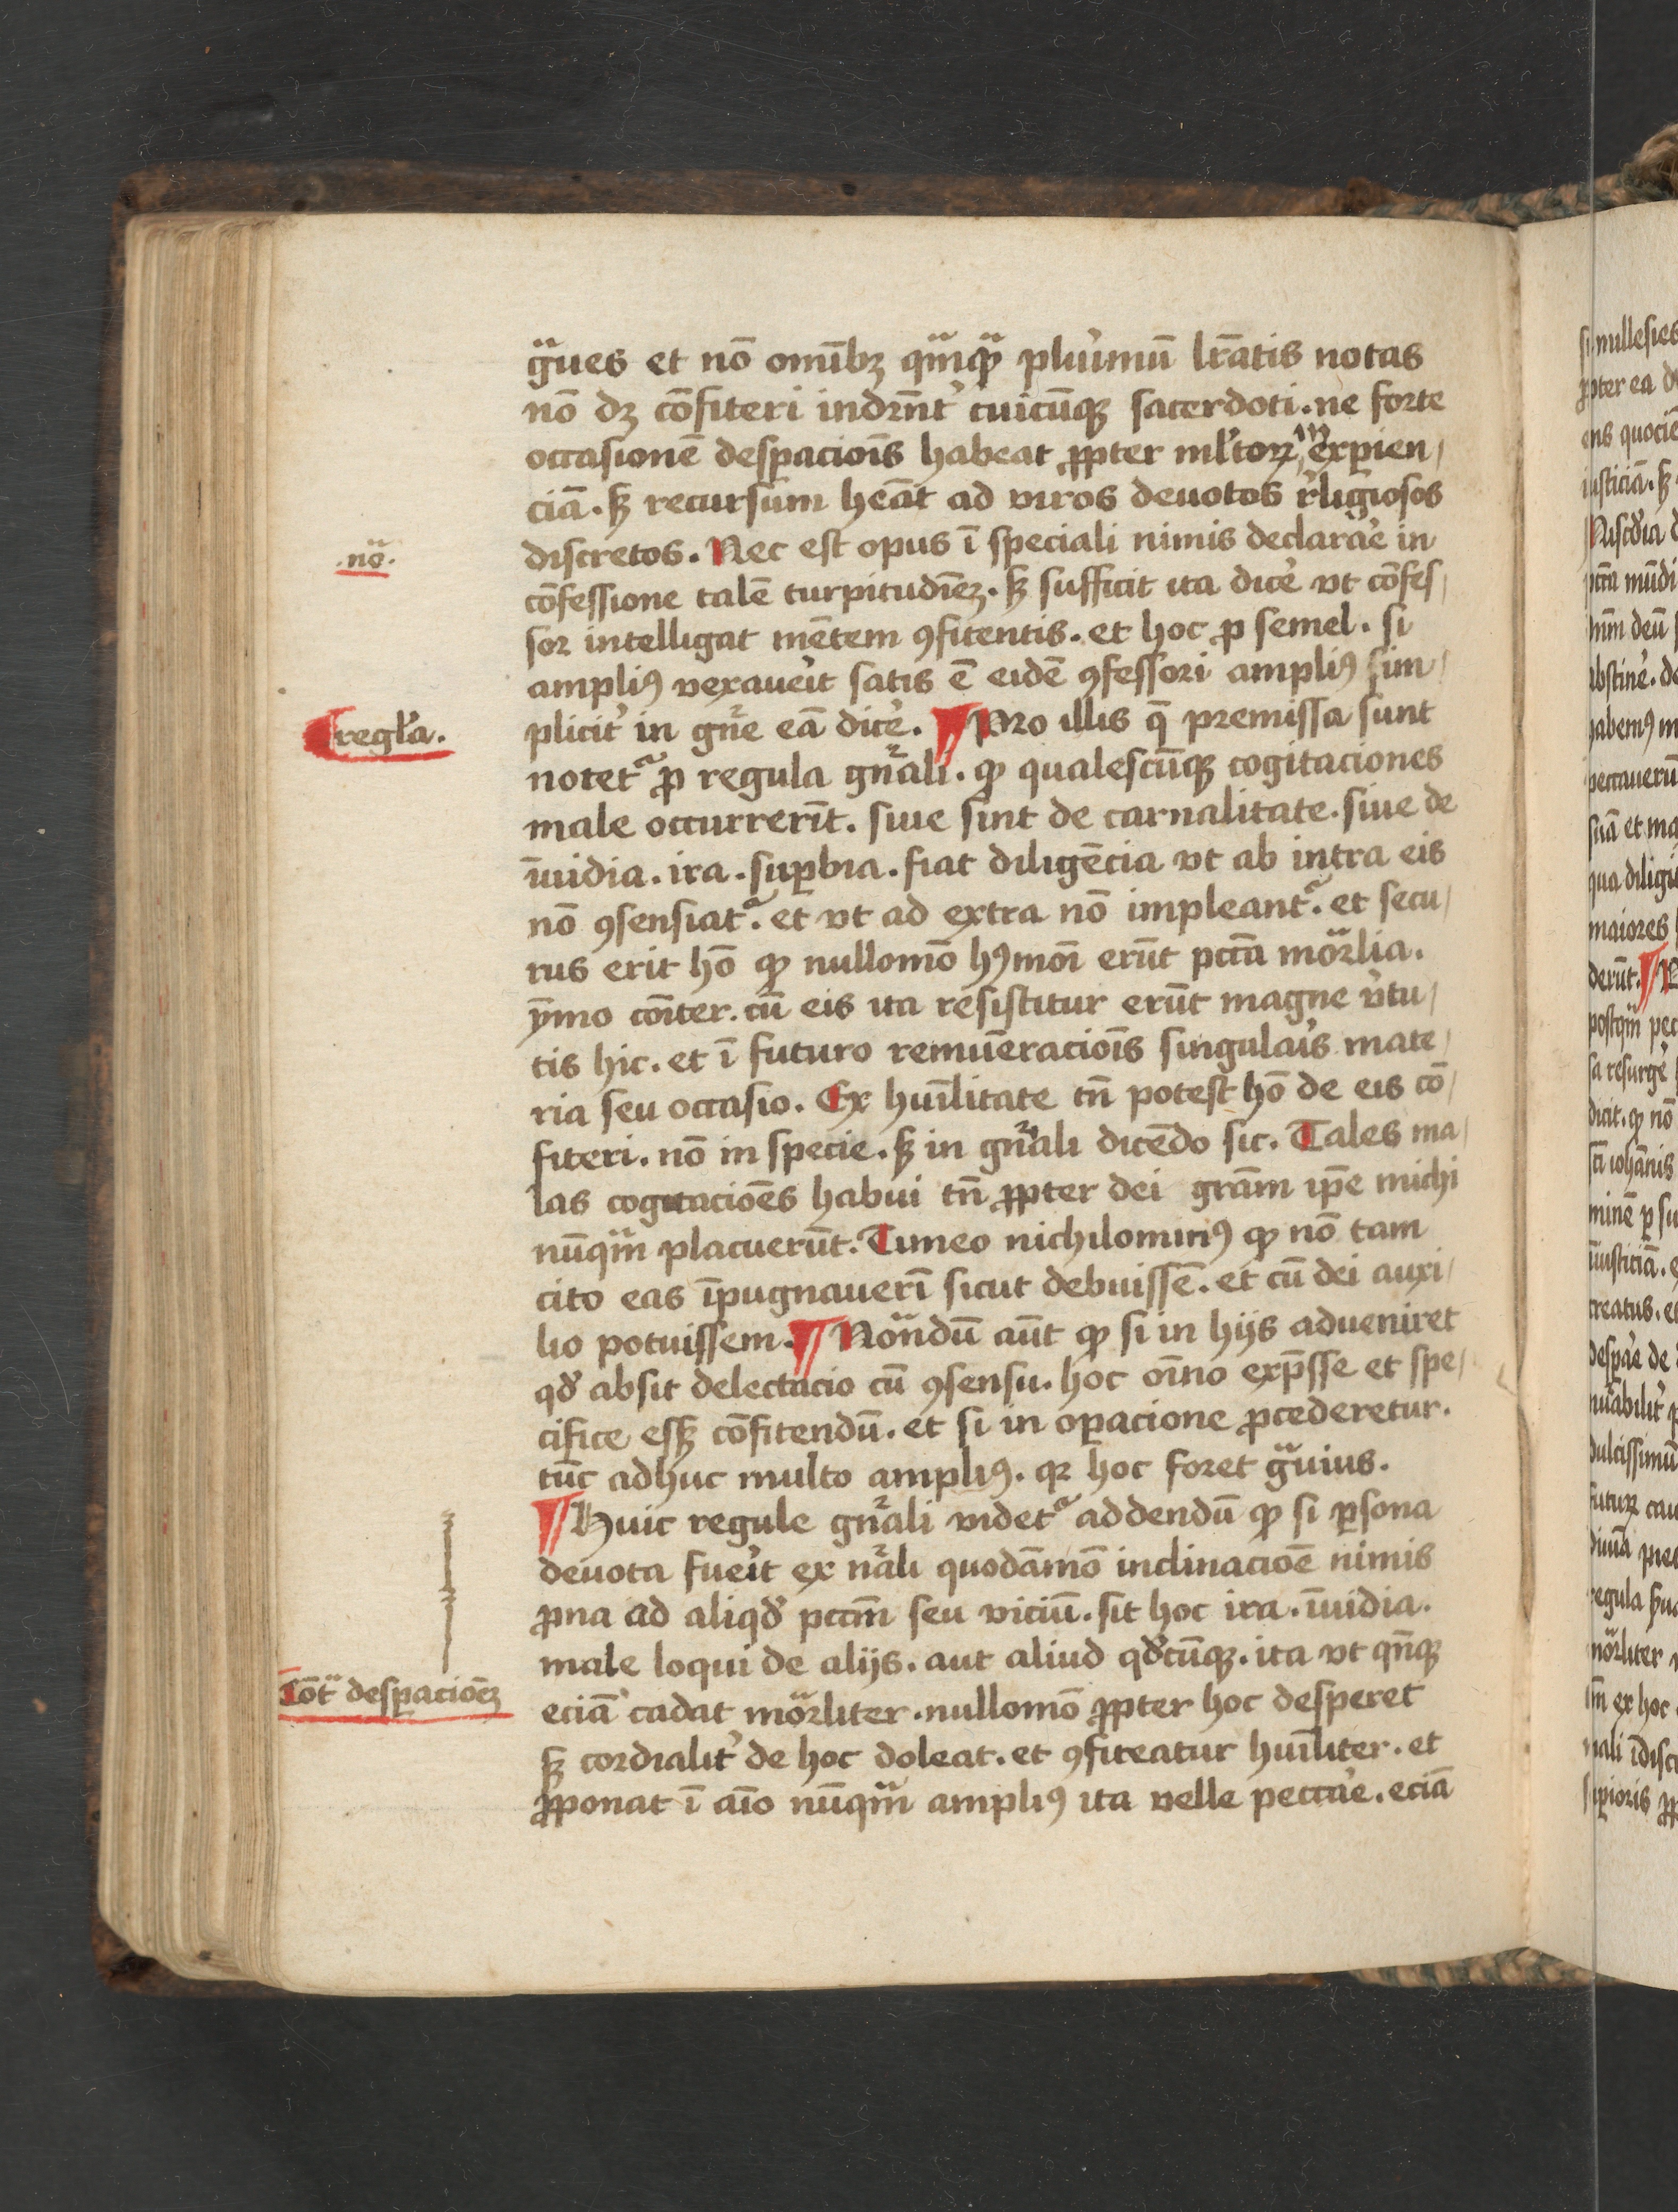 g̃ues et nō om̄ibꝫ qm̄qꝫ plu'imū lr̄atis notas
nō dꝫ cōfiteri indr̄nt' cuicūqꝫ sacerdoti. ne forte
occasionē desꝑacioīs habeat ꝓpter ml'toꝝ in exꝑien/
ciā. sꝫ recursum heāt ad viros deuotos r'ligiosos
.noᷓ.
discretos. Nec est opus ī speciali nimis declara'e in
cōfessione talē turpitudīeꝫ. sꝫ sufficit ita dice' vt cōfes/
sor intelligat mētem ꝯfitentis. et hoc ꝓ semel. si
ampliꝰ vexaue'it satis ē eidē ꝯfessori ampliꝰ sim/
regl'a.
plicit' in gn̄e eā dice'. ¶ Pro illis q̄ premissa sunt
notet᷑ ꝓ regula gn̄ali. ꝙ qualescūqꝫ cogitaciones
male occurrerīt. siue sint de carnalitate. siue de
īuidia. ira. suꝑbia. fiat diligēcia vt ab intra eis
nō ꝯsensiat᷑. et vt ad extra nō impleant᷑. et secu/
rus erit hō ꝙ nullomō hꝰmōi erūt pctā morᷓlia.
ȳmo cōiter. cū eis ita resistitur erūt magne v'tu/
tis hic. et ī futuro remūeracioīs singula'is mate/
ria seu occasio. Ex huīlitate tn̄ potest hō de eis cō/
fiteri. nō in specie. sꝫ in gn̄ali dicēdo sic. Tales ma/
las cogitacioēs habui tn̄ ꝓpter dei grām ip̄e michi
nūqm̄ placuerūt. Timeo nichilominꝰ ꝙ nō tam
cito eas īpugnauerī sicut debuissē. et cū dei auxi/
lio potuissem. ¶ Noᷓndū aūt ꝙ si in hijs adueniret
qd' absit delectacio cū ꝯsensu. hoc oīno exp̄sse et spe/
cifice essꝫ cōfitendū. et si in oꝑacione ꝓcederetur.
tūc adhuc multo ampliꝰ. qꝛ hoc foret gᷓuius.
¶ Huic regule gn̄ali videt᷑ addendū ꝙ si ꝑsona
deuota fue'it ex nāli quodāmō inclinacioē nimis
ꝓna ad aliqd' pctm̄ seu viciū. sit hoc ira. īuidia.
male loqui de alijs. aut aliud qd'cūqꝫ. ita vt qn̄qꝫ
Cōtᷓ desꝑacioēꝫ
eciā cadat morᷓliter. nullomō ꝓpter hoc desperet
sꝫ cordialit' de hoc doleat. et ꝯfiteatur huīliter. et
ꝓponat ī aīo nūqm̄ ampliꝰ ita velle pecca'e. eciā